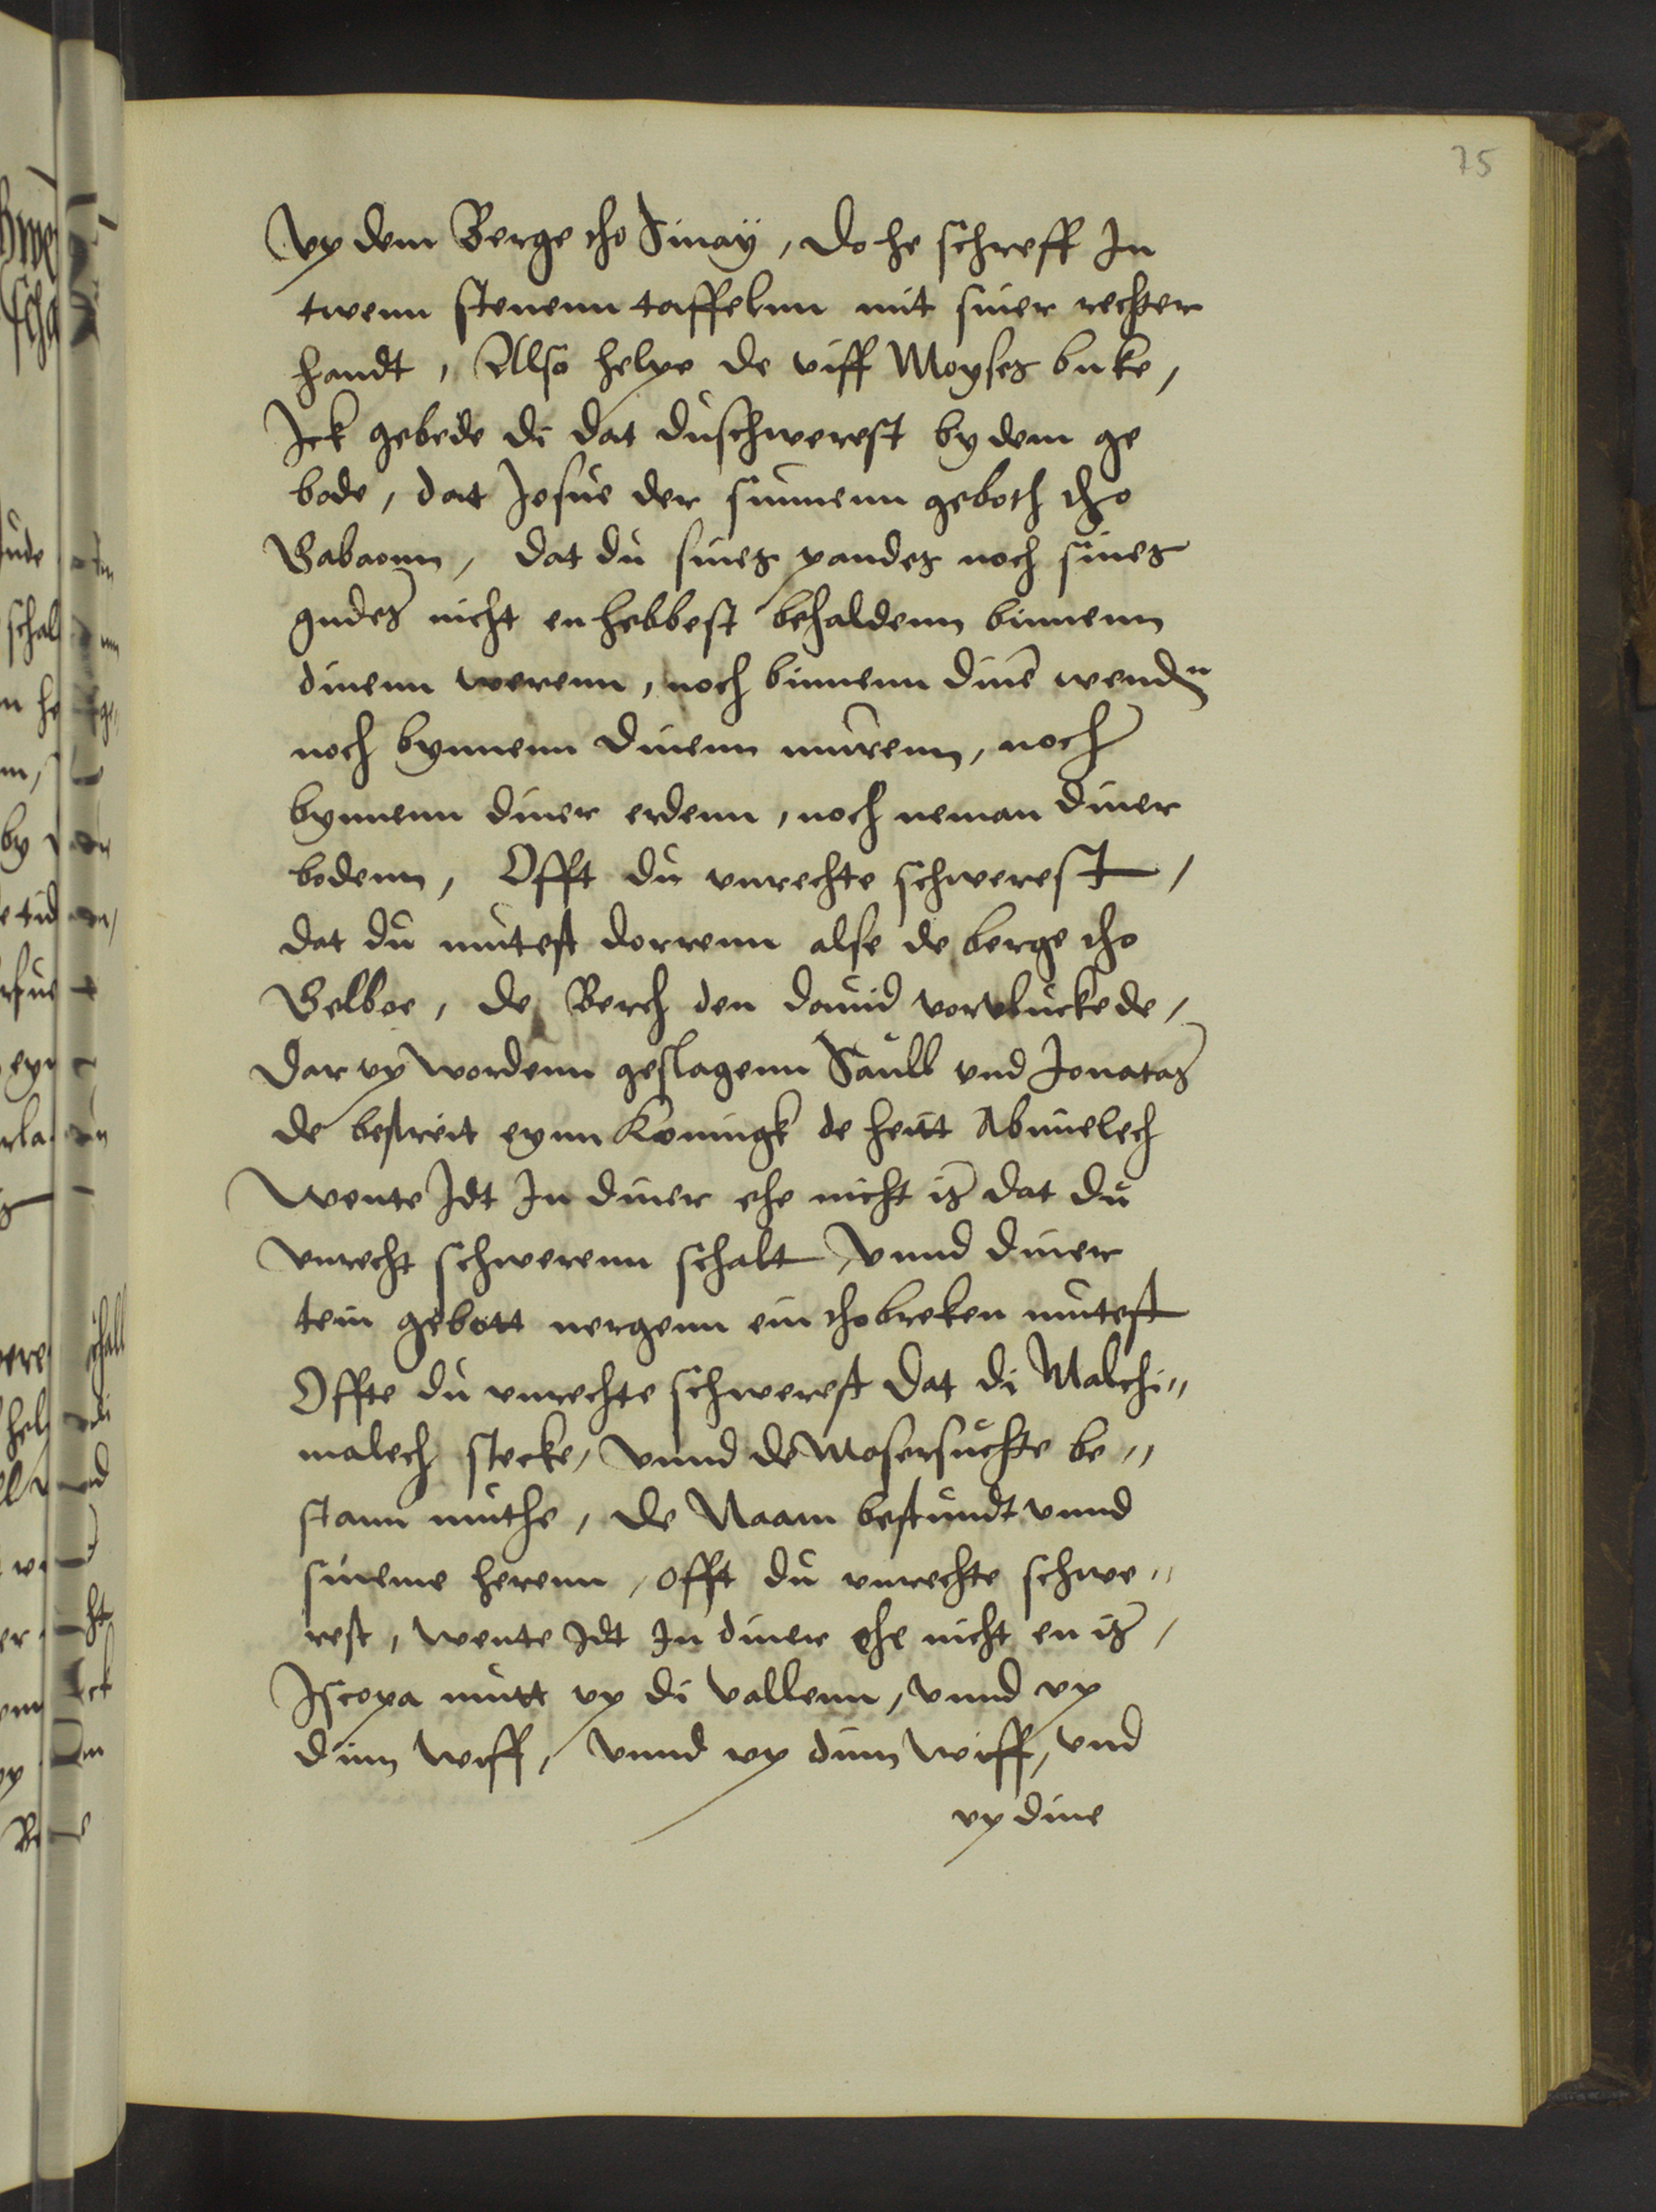 75
vp dem Berge tho Sinaÿ, do he schreff Jn
twenn stenenn taffelnn mit siner rechter
handt, Also helpe de viff Moyses buke,
Jck gebede di dat du schwerest by dem ge
bode, dat Josue der sunnenn geboth tho
Gabaonn, dat du sines pandes noch sines
gudes nicht en hebbest behaldenn binnenn
dinenn werenn, noch binnenn dinē wendn̄
noch bynnenn dinenn murenn, noch
bynnenn diner erdenn, noch neman diner
bodenn, Offt du vnrechte schwerest,
dat du mutest dorrenn alse de berge tho
Gelboe, de Berch den dauid vorvluckede,
Dar vp wordenn geslagenn Saull vnd Jonatas
de bestreit eynn Koningk de heitt Abimelech
wente Jdt Jn diner ehe nicht is dat du
vnrecht schwerenn schalt vnnd diner
tein gebott nergenn ein thobreken mutest
Offte du vnrechte schwerest dat di Malchi„
malech stecke, vnnd de Masersuchte be„
stann muthe, de Naam bestundt vnnd
sineme herenn, offt du vnrechte schwe„
rest, wente Jdt Jn diner ehe nicht en is,
Jscopa mutt vp di vallenn, vnnd vp
dinn wiff, vnnd vp dinn wiff, vnd
vp dine